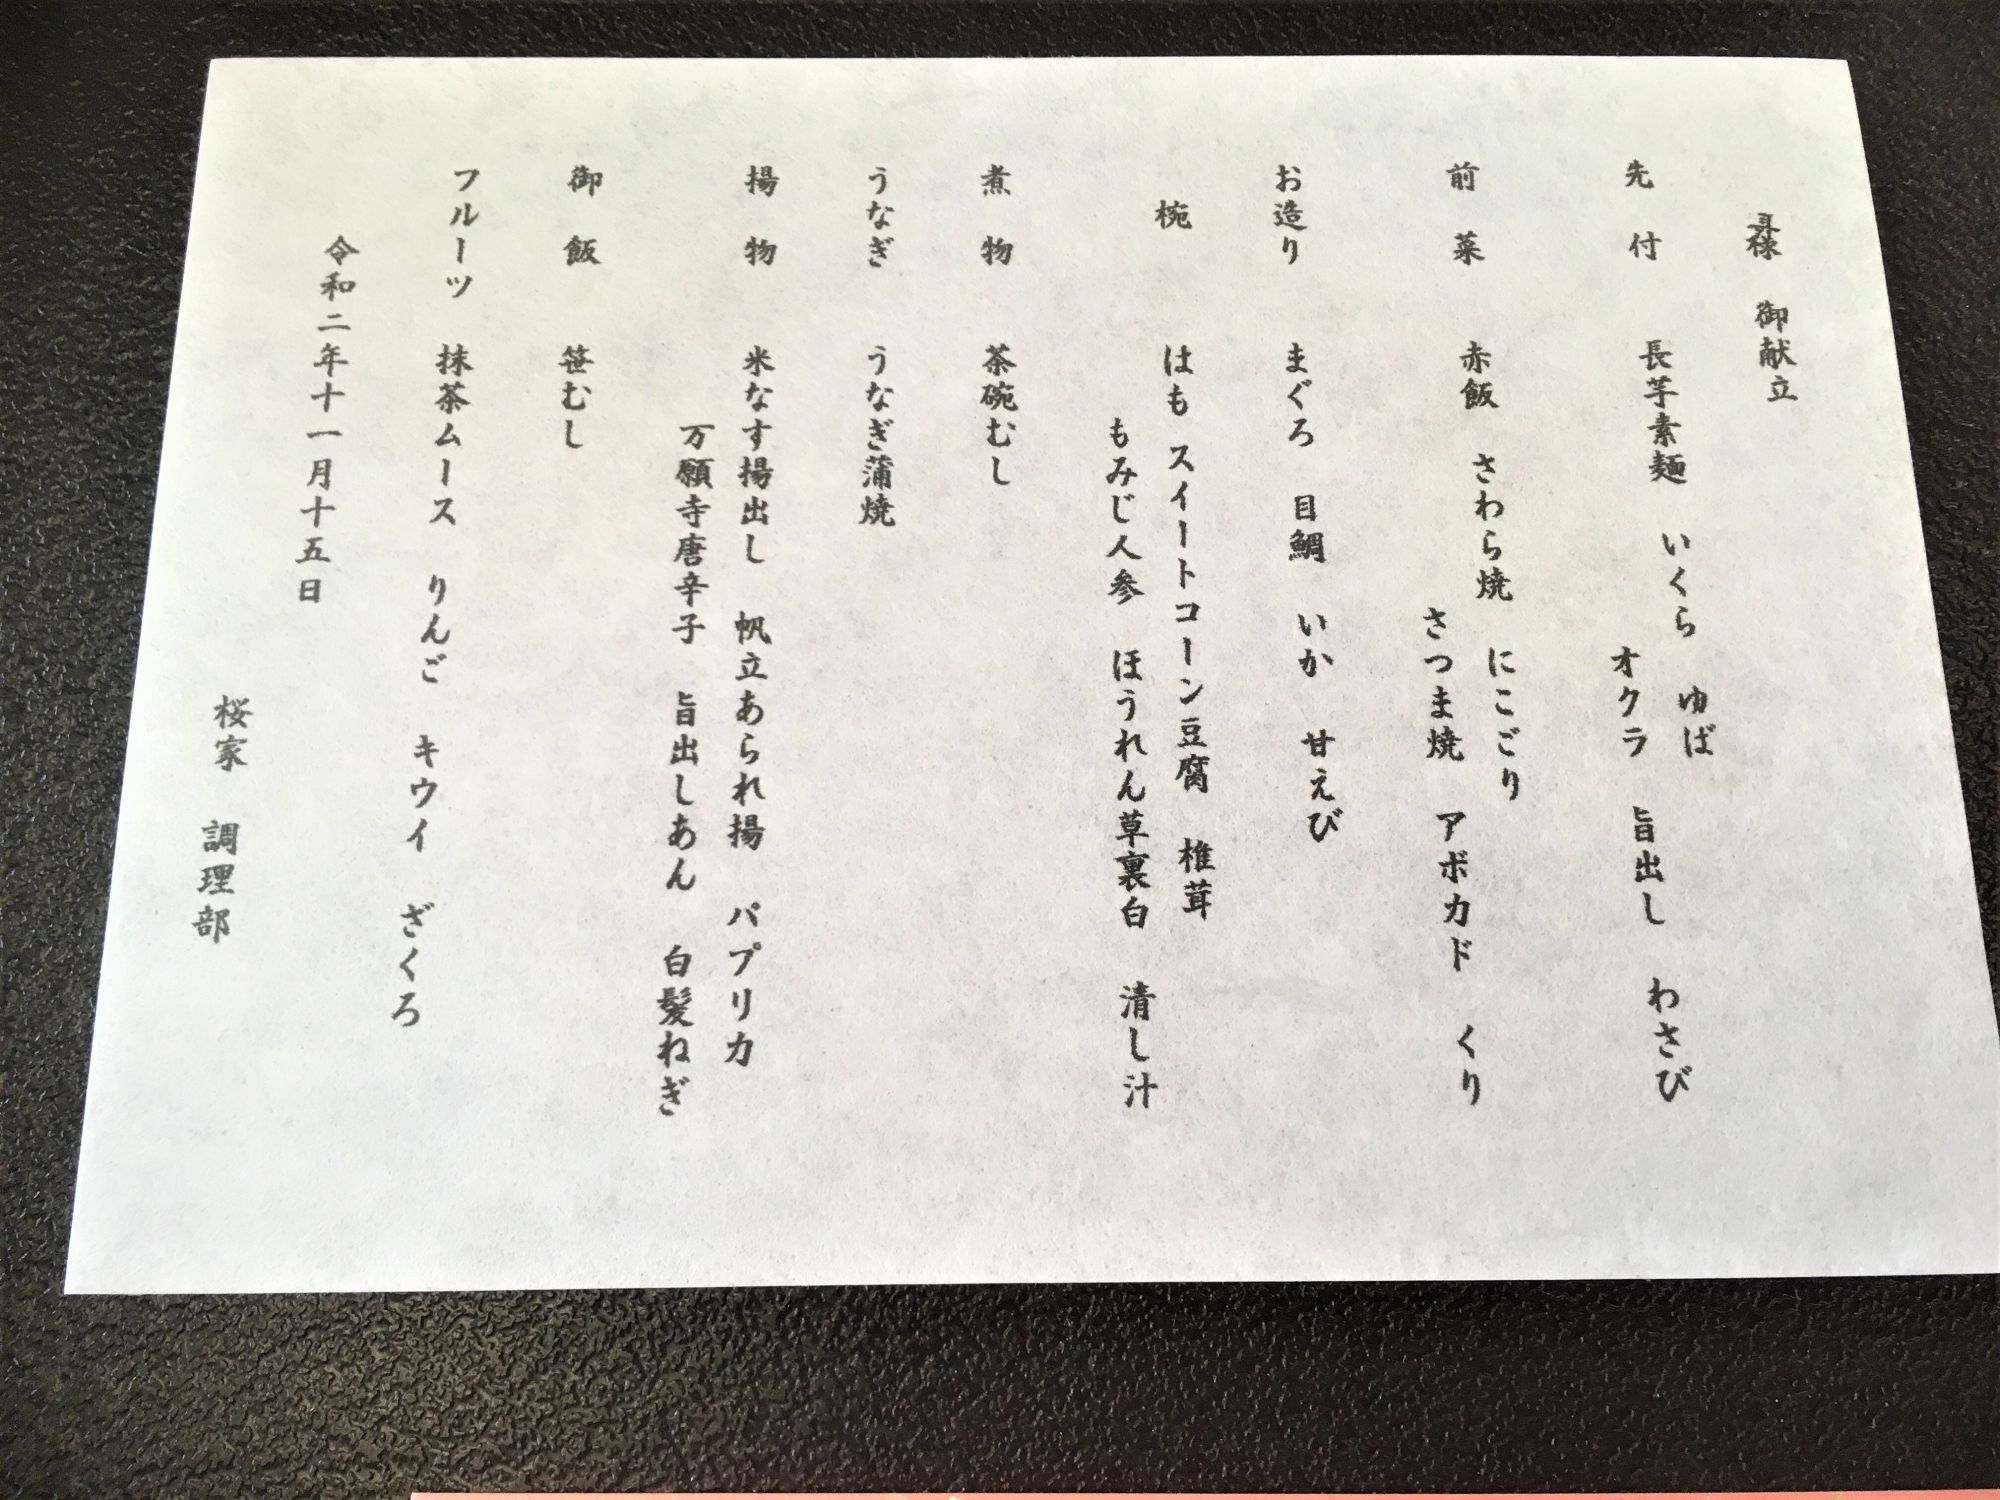 様 御献立
先付 長芋素麺 いくら ゆば
オクラ 旨出し わさび
前菜 赤飯 さわら焼 にこごり
さつま焼 アボカド くり
お造り まぐろ 目鯛 いか 甘えび
椀 はも スイートコーン豆腐 椎茸
もみじ人参 ほうれん草裏白 清し汁
煮物 茶碗むし
うなぎ うなぎ蒲焼
揚物 米なす揚出し 帆立あられ揚 パプリカ
万願寺唐辛子 旨出しあん 白髪ねぎ
御飯 笹むし
フルーツ 抹茶ムース りんご キウイ ざくろ
令和二年十一月十五日
桜家 調理部